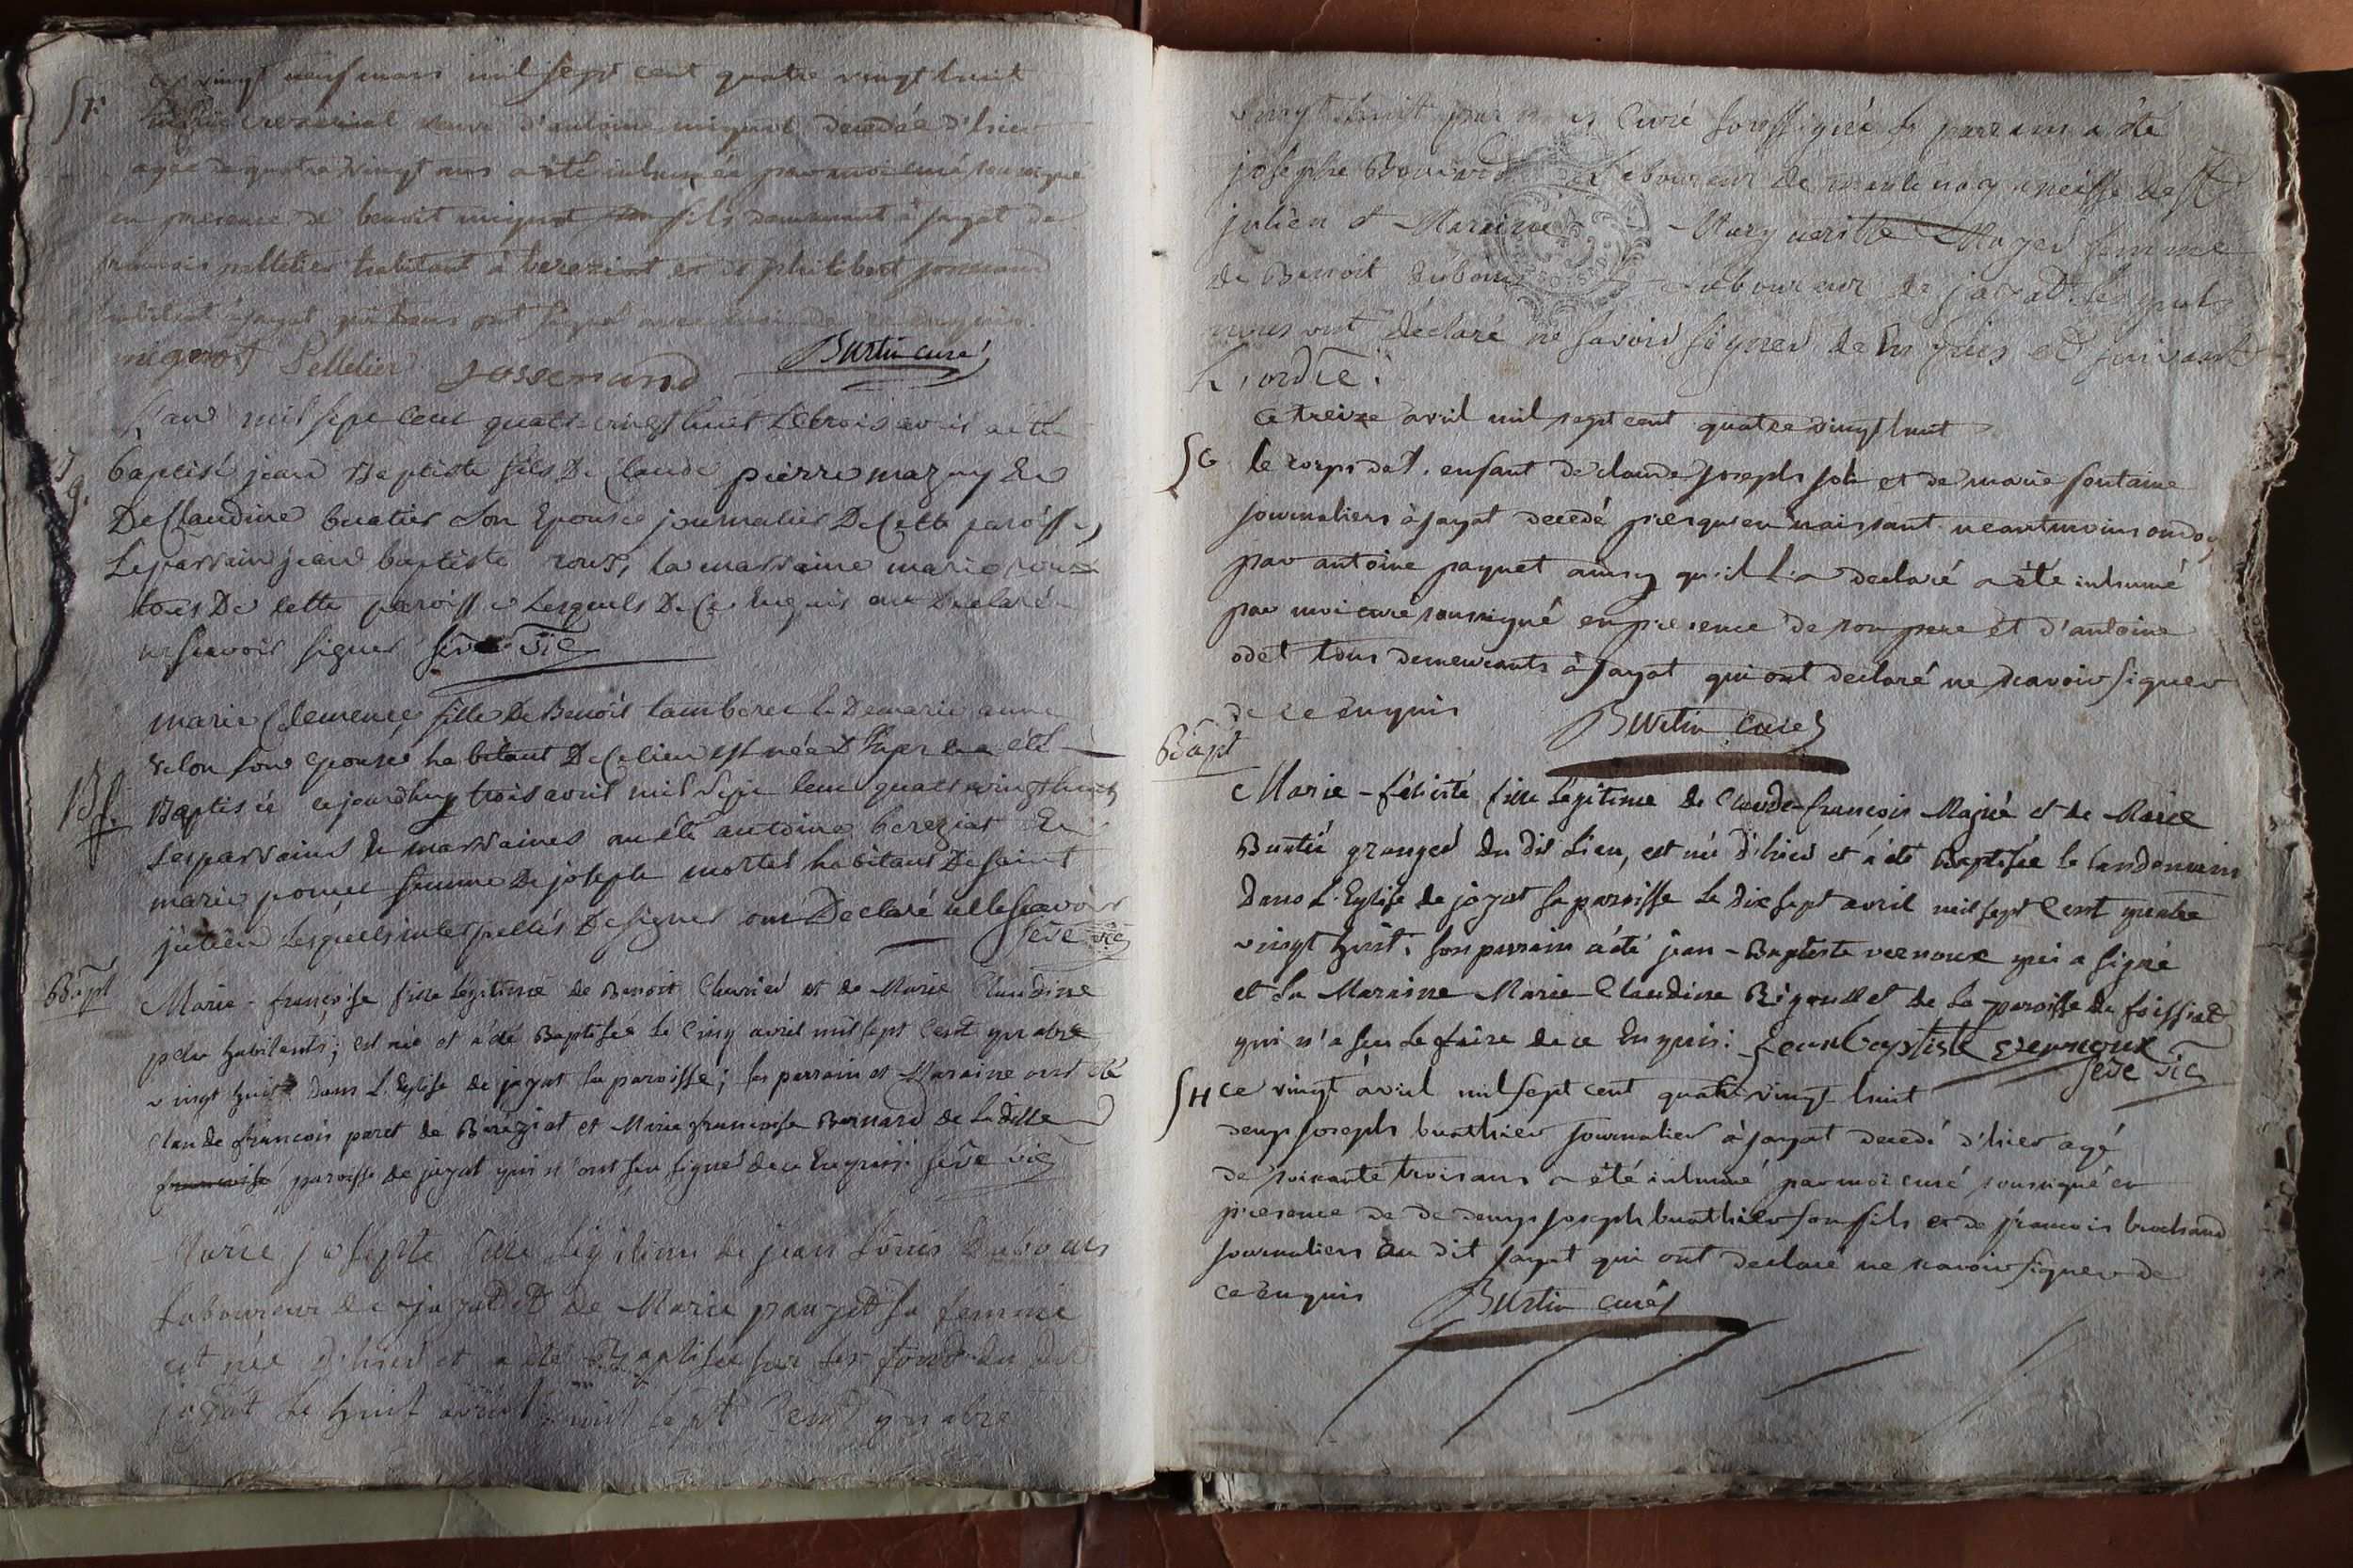 ce vingt neuf mars mil sept cent quatre vingt huit
SF
veuve d'antoine mignot decedée d'hier
agée de quatre vingt ans a été inhumée par moi curé soussigné
en presence de benoit mignot son fils demeurant à jayat de
francois pelletier habitant à bereziat et de philibert josserand
habitant à jayat qui tous ont signé avec moi de ce enquis.
mignot Pelletier josserand Burtin curé
L'an mil sept cent quatre vingt huit le trois avril a été
baptisé jean Baptiste fils De Claude pierre mazuy Et
De Claudine buatier son Epouse journalier De Cette paroisse,
Le parrain jean baptiste roux, la marraine marie roux
tous De Cette paroisse Lesquels De Ce Enquis ont Declaré
ne scavoir signer sève vic
marie Clemence fille De Benoît lamberet Et De marie anne
velon son epouse habitant De Ce lieu est née D'hyer Et a été
Bf.
Baptisée cejourdhuy trois avril mil Sept Cent quatre vingt huit
Les parrains Et marraines ont été antoine bereziat Et
marie poncet femme De joseph mortel habitant De Saint
julien Lesquels interpellés De signer ont Declaré ne le scavoir
sève vic
Bapt
Marie-françoise fille Légitime de Benoit Clavier et de Marie Claudine
habitants; est née et a été Baptisée Le Cinq avril mil sept Cent quatre
vingt huit Dans L'Eglise de jayat sa paroisse; les parrain et Maraine ont été
Claude françois paret de Béréziat et Marie françoise Bernard de La dille
françoise paroisse de jayat qui n'ont seu signer de ce Enquis: sève vic
Marie josephte fille Légitime de jean Louis Dubois
Laboureur de jayat et de Marie sa femme
est née d'hier et a été Baptisée sur les fonds du dit
jayat Le huit avril mil sept Cent quatre
vingt huit par Curé soussigné le parrain a été
josephe Laboureur de paroisse de St
julien et Maraine Margueritte Moyer femme
de Benoit Dubois Laboureur de jayat Lesquels
ont déclaré ne savoir signer de En quis et suivant
L'ordre.
ce treize avril mil sept cent quatre vingt huit
SG
le corps d'1. enfant de claude joseph joli et de marie fontaine
journaliers à jayat decedé presqu'en naissant neantmoins ondoyé
par antoine paquet ainsy qu'il l'a declaré a été inhumé
par moi curé soussigné en presence de son pere et d'antoine
odet tous demeurants à jayat qui ont declaré ne scavoir signer
de ce enquis Burtin curé
Bapt
Marie-félicité fille Légitime de Claude-françois Majué et de Marie
Buatié granger du dit Lieu, est née d'hier et a été Baptisée le landemain
Dans L'Eglise de jayat sa paroisse Le dix sept avril mil sept Cent quatre
vingt huit. son parrain a été jean-Baptiste vernoux qui a signé
et La Maraine Marie-Claudine Rigoullet de La paroisse de foissiat
qui n'a seu Le faire de ce Enquis: jean baptiste vernoux
sève vic
SH
ce vingt avril mil sept cent quatre vingt huit
denys joseph buathier journalier à jayat decedé d'hier agé
de soixante trois ans a été inhumé par moi curé soussigné en
presence de de denys joseph buathier son fils et de francois brochand
journaliers au dit jayat qui ont declaré ne scavoir signer de
ce enquis Burtin curé